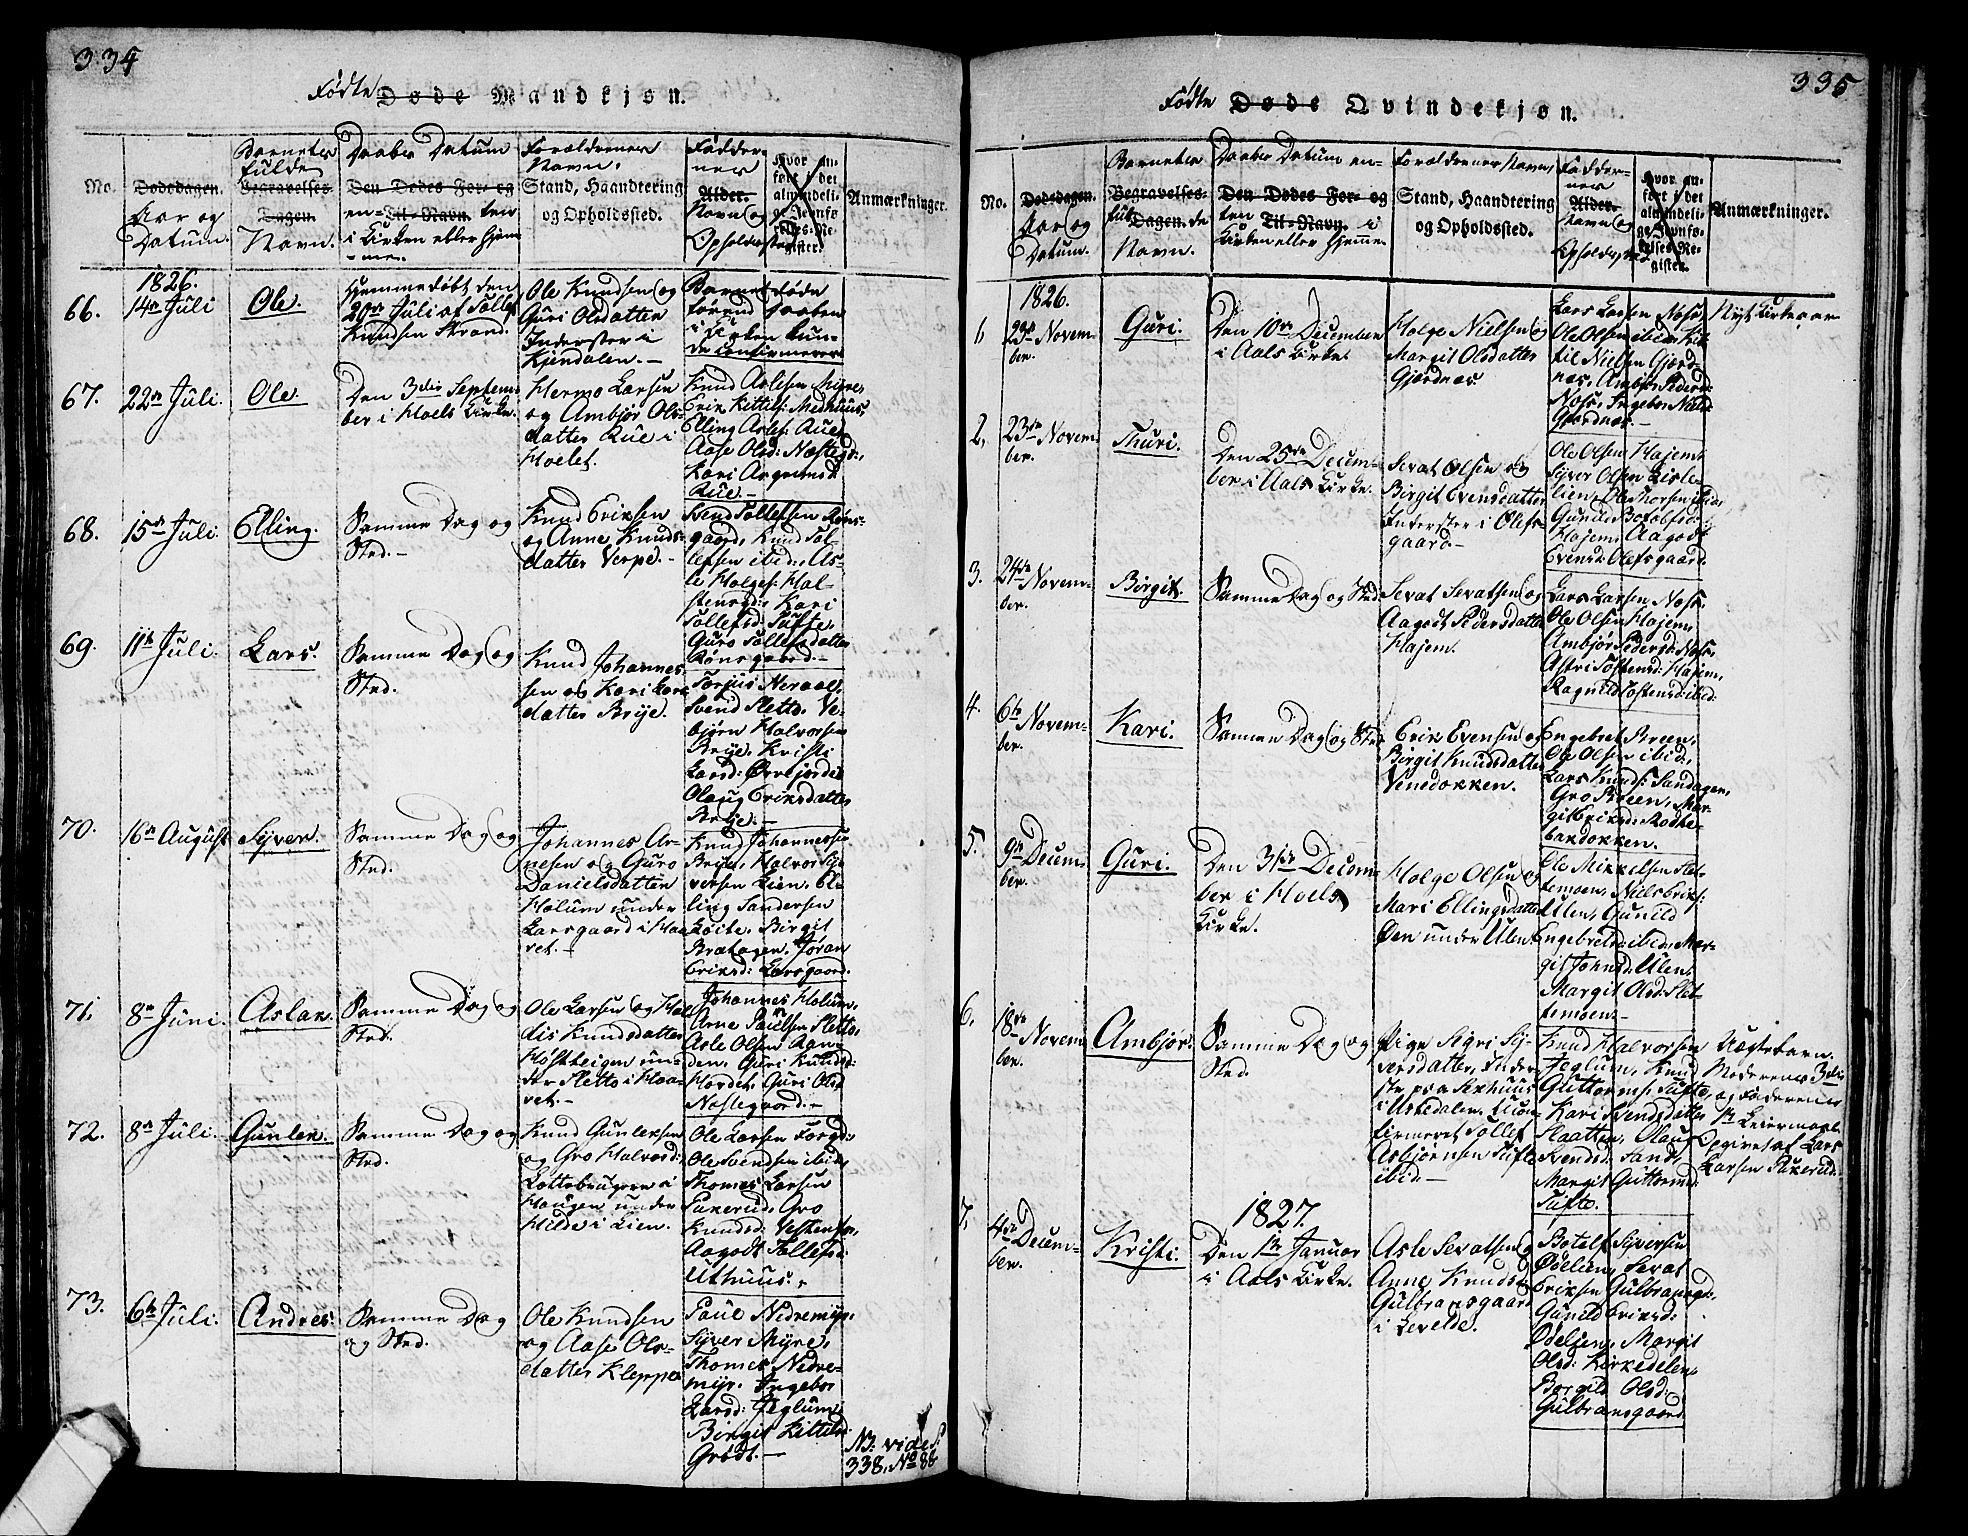 334
Fødte Døde Mandkjøn.
No.
Dødsdagen.
Aar og
Datum.
Barnets
fulde
Begravelses-
Dagen.
Navn.
Daabs Datum
Den Dødes For- og
en- Til-Navn. ten
i Kirken eller hjem-
me.
Forældrenes
Navn,
Stand, Haandtering
og Opholdssted.
Fadder-
nes
Alder.
Navn og
Opholdssted
Hvor an-
ført i det
almindeli-
ge Jevnfø-
relses-Re-
gister.
Anmærkninger.
1826.
66.
14de Juli
Ole
Hjemmedøbt den
20de Juli af Tollef
Knudsen Strand.
Ole Knudsen og
Guri Olsdatter
Inderster i
Kjendalen.
Barnet døde
førend Daaben
i Kirken kun-
de confirmeres
67.
22de Juli.
Ole
Den 3die Septem-
ber i Hoels Kirke.
Hermo Larsen
og Ambjør Ols-
datter Rue i
Hoelet.
Knud Aslesen Myre,
Erik Kittils: Medhuus,
Elling Asles: Rue,
Aase Olsd: Næstegd:,
Kari Asgrimsd:
Rue.
68.
15de Juli.
Elling.
Samme Dag og
Sted.
Knud Eriksen
og Anne Knuds-
datter Verpe.
Svend Tollefsen Røns-
gaard, Knud Tol-
lefsen ibid:, As-
le Helges: Hal-
stensgd:, Kari
Tollefsd: Tufte,
Guro Tollefsdatter
Rønsgaard.
69.
11te Juli.
Lars.
Samme Dag og
Sted.
Knud Johannes-
sen og Kari Lars-
datter Brye.
Torjus Neraal,
Svend Sletto, Ve-
bjørn Halvorsen
Brye, Kristi
Larsd: Øvrejorde,
Olaug Eriksdatter
Brye.
70.
16de August
Syver.
Samme Dag og
Sted.
Johannes Ar-
nesen og Guro
Danielsdatter
Holum under
Larsgaard i Hoa-
vet.
Knud Johannessen
Brye, Halvor Sy-
versen Lien, El-
ling Sandersen
Løite, Birgit
Bratagen, Jøran
Eriksd: Larsgaard.
71.
8de Juni.
Aslak.
Samme Dag og
Sted.
Ole Larsen og Hal-
dis Knudsdatter
Høftheigen un-
der Sletto i Hoa-
vet.
Johannes Holum,
Arne Paulsen Sletto,
Asle Olsen Ran-
den, Guri Knudsd:
Hordet, Guri Olsd
Næstegaard.
72.
8de Juli.
Gunlek.
Samme Dag og
Sted.
Knud Gunleksen
og Gro Halvorsd:
Lottebrugere i
Haugen under
Hilde i Lien.
Ole Larsen Torgd:
Ole Svendsen ibid,
Thomes Larsen
Pukerud, Gro
Knudsd: Vestenfor,
Aagodt Tollefsd:
Uthuus.
73.
6te Juli.
Andres.
Samme Dag
og Sted.
Ole Knudsen
og Aase Ols-
datter Kleppe
Paul Nedremyr,
Syver Myre,
Thomes Nedre-
myr, Ingebor
Larsd: Jeglum,
Birgit Kittelsd
Grødt.
NB. vide S.
338, No 88
335
Fødte Døde Qvindekjøn.
No.
Dødsdagen.
Aar og
Datum.
Barnets
Begravelses-
ful- Dagen. de
Navn.
Daabs Datum en-
Den Dødes For- og
ten Til-Navn. i
Kirken eller hjemme.
Forældrenes Navn,
Stand, Haandtering
og Opholdssted.
Fadder-
nes
Alder.
Navn og
Opholdssted
Hvor an-
ført i det
almindeli-
ge Jevnfø-
relses-Re-
gister.
Anmærkninger.
1826.
1
23de Novem-
ber.
Guri.
Den 10de December
i Aals Kirke.
Helge Nielsen og
Margit Olsdatter
Gjerdnæs.
Lars Larsen Noss,
Ole Olsen ibid, Kit-
til Nielsen Gjerd-
næs, Ambjør Pedersd:
Noss, Ingebor Nielsd:
Gjerdnæs.
Nyt Kirkeaar
2,
23de Novem-
ber.
Thuri.
Den 25de Decem-
ber i Aals Kirke.
Sevat Olsen og
Birgit Evensdatter
Inderster i Olefs-
gaard.
Ole Olsen Hajem,
Syver Olsen Lisle-
lien, Ole Thorsen ibid,
Gunild Botolfsd:
Hajem, Aagodt
Evensd: Olefsgaard.
3.
24de Novem-
ber.
Birgit.
Samme Dag og Sted.
Sevat Sevatsen og
Aagodt Pedersdatter
Hajem.
Lars Larsen Noss,
Ole Olsen Hajem,
Ambjør Pedersd: Noss,
Astri Tostensd: Hajem,
Ragnild Tostensd: ibid.
4.
6te Novem-
ber.
Kari.
Samme Dag og Sted
Erik Evensen og
Birgit Knudsdatter
Venedokken.
Engebret Breen,
Ole Olsen ibid,
Lars Knuds: Sundagen,
Gro Breen, Mar-
git Eriksd: Rodne-
bakdokken.
5.
9de Decem-
ber.
Guri.
Den 31te Decem-
ber i Hoels
Kirke.
Helge Olsen og
Mari Ellingsdatter
Øen under Ulen.
Ole Mikkelsen Slet-
temoen, Niels Eriks:
Ulen, Gunild
Engebretsd: ibid, Mar-
git Johnsd: Ulen,
Margit Olsd: Slet-
temoen.
6,
18de Novem-
ber.
Ambjør.
Samme Dag og
Sted.
Pige Sigri Sy-
versdatter, Inder-
ste paa Sexhuus
i Ustedalen, Ucon-
firmeret Tollef
Asbjørnsen Tufte
ibid.
Knud Halvorsen
Jeglum, Knud
Guttorms: Tufte,
Kari Svendsdatter
Slaatten, Olaug
Svendsd: Sand,
Margit Guttormsd:
Tufte.
Uægte barn.
Moderens 3die
og Faderens
1te Leiermaal
Opgivet af Lars
Larsen Pukerud.
7,
4de Decem-
ber.
Kristi.
1827.
Den 1te Januar
i Aals Kirke.
Asle Sevatsen og
Anne Knudsd:
Gulbransgaard
i Levelde.
Botolf Syversen
Ødelien, Sevat
Eriksen Gulbransgd:,
Gunild Eriksd:
Ødelien, Margit
Olsd: Kirkedelen,
Borgild Olsd:
Gulbransgaard